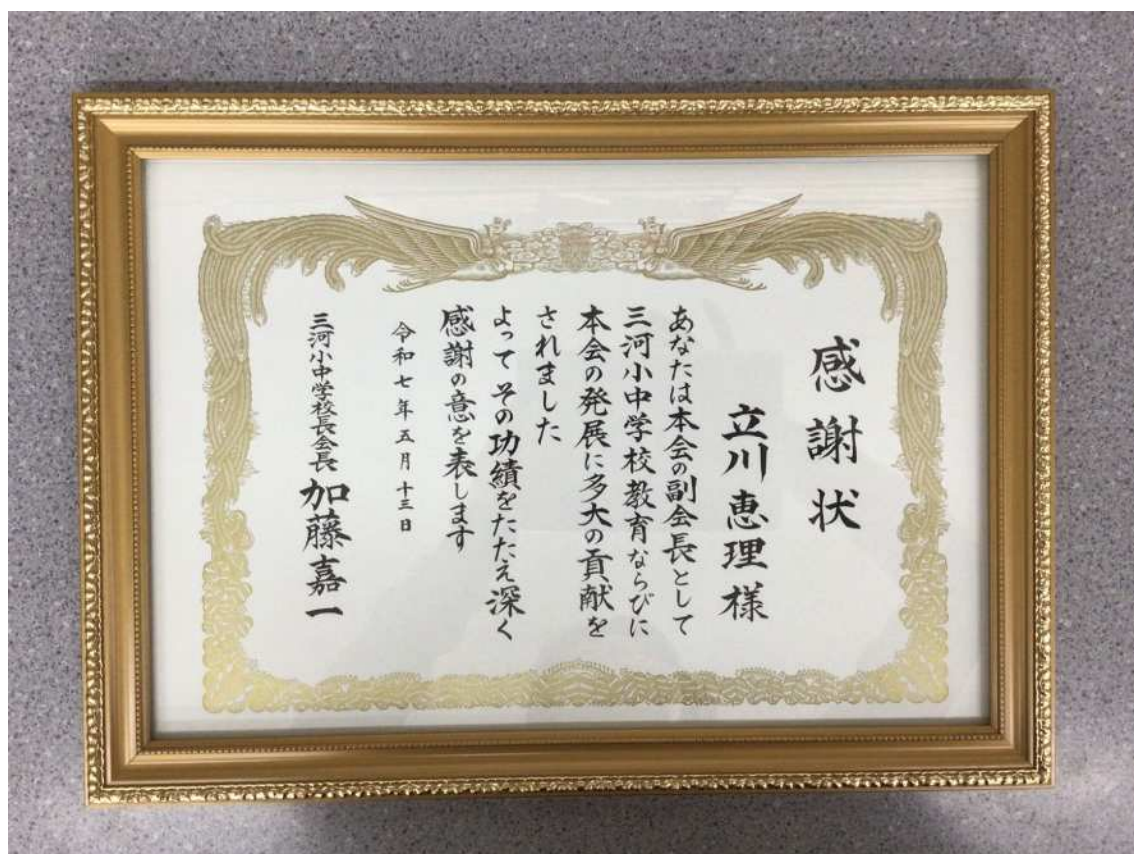 感謝状
立川恵理様
あなたは本会の副会長として
三河小中学校教育ならびに
本会の発展に多大の貢献を
されました
よって その功績をたたえ深く
感謝の意を表します
令和七年五月十三日
三河小中学校長会長 加藤嘉一